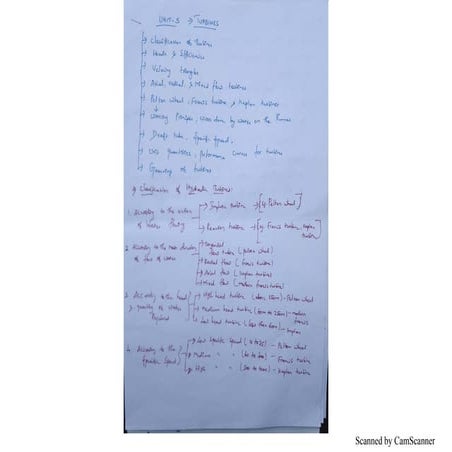 UNIT-5 → TURBINES
→ Classification of Turbines
→ Heads & Efficiencies
→ Velocity triangles
→ Axial, radial, & Mixed flow turbines
→ Pelton wheel, Francis turbine & Kaplan turbines
→ working Principles, work done by water on the Runner
→ Draft tube, Specific speed,
→ Unit quantities, performance curves for turbine
→ Governing of turbines
Classification of Hydraulic Turbines:
1. According to the action of water flowing
→ Impulse turbine → [eg Pelton wheel]
→ Reaction turbine → [eg Francis turbine, Kaplan turbine]
2. According to the main direction of flow of water
→ Tangential flow turbine (pelton wheel)
→ Radial flow (Francis turbine)
→ Axial flow (Kaplan turbine)
→ Mixed flow (modern francis turbine)
3. According to the head & quantity of water Required
→ High head turbine (above 250m) - Pelton wheel
→ Medium head turbine (60m to 250m) - modern francis
→ Low head turbine (less than 60m) - Kaplan
4. According to the Specific Speed
→ Low Specific Speed - Pelton wheel
→ Medium " " - Francis turbine
→ High " " - Kaplan turbine
Scanned by CamScanner